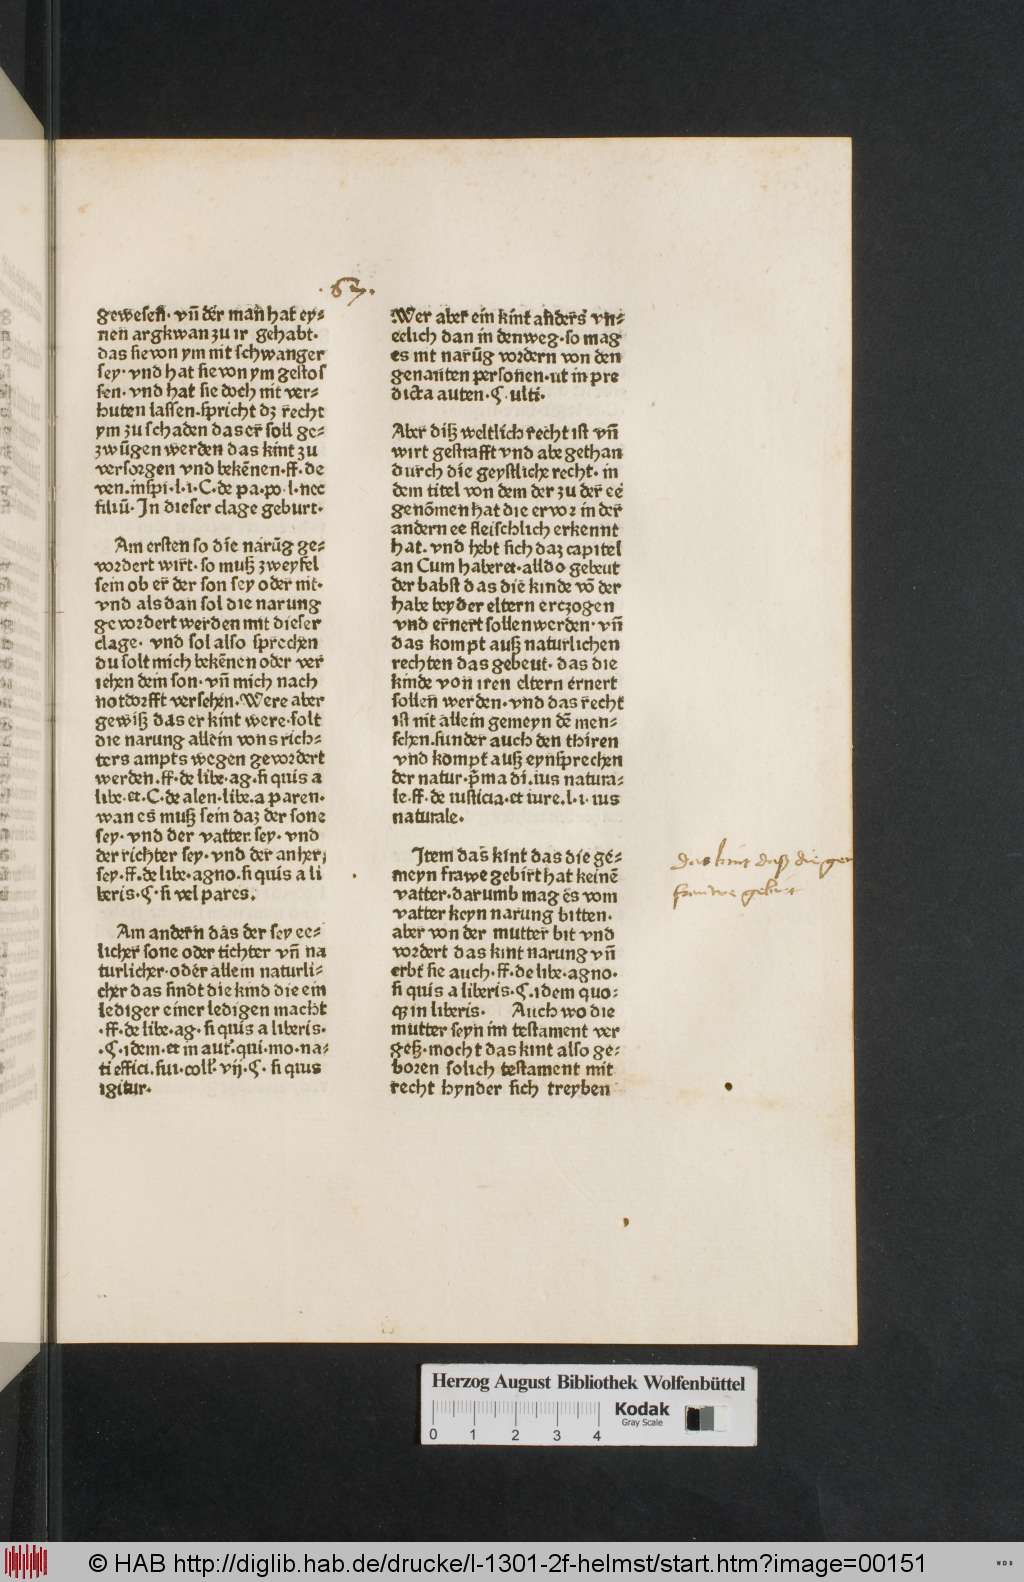 .67.
geweſen· vñ der man hat ey⸗
nen argkwan zu ir gehabt·
das ſie von ym nit ſchwanger
ſey· vnd hat ſie von ym geſtoſ
ſen· vnd hat ſie doch nit ver⸗
huten laſſen.ſpricht dz recht
ym zu ſchaden das er ſoll ge⸗
zwũgen werden das kint zu
verſorgen vnd bekẽnen·ff·de
ven.inſpi·l·i·C·de pa·po·l·nec
filiũ· In dieſer clage geburt·
Am erſten ſo die narũg ge⸗
vordert wirt· ſo muß zweyfel
ſein ob er der ſon ſey oder nit·
vnd als dan ſol die narung
gevordert werden mit dieſer
clage· vnd ſol alſo ſprechen
du ſolt mich bekẽnen oder ver
iehen dein ſon· vñ mich nach
notdorfft verſehen· Were aber
gewiß das er kint were·ſolt
die narung allein von s rich⸗
ters ampts wegen gevordert
werden.ff·de libe·ag·ſi quis a
libe·et·C·de alen·libe.a paren·
wan es muß ſein daz der ſone
ſey· vnd der vatter. ſey· vnd
der richter ſey· vnd der anher
ſey·ff·de libe·agno·ſi quis a li
beris·ꝶ·ſi vel pares.
Am andern das der ſey ee⸗
licher ſone oder tichter vñ na
turlicher·oder allein naturli⸗
cher das ſindt die kind die ein
lediger einer ledigen macht
·ff·de libe·ag·ſi quis a liberis·
·ꝶ·idem·et in aut̃·qui·mo·na⸗
ti effici.ſui·coll·vij·ꝶ· ſi quis
igitur·
Wer aber ein kint anders vn⸗
eelich dan in den weg·ſo mag
es nit narũg vordern von den
genanten perſonen·ut in pre
dicta auten·ꝶ·ulti·
Aber diß weltlich recht iſt vñ
wirt geſtrafft vnd abegethan
durch die geyſtliche recht· in
dem titel von dem der zu der ee
genõmen hat die er vor in der
andern ee fleiſchlich erkennt
hat· vnd hebt ſich daz capitel
an Cum haberet·alldo gebeut
der babſt das die kinde võ der
habe beyder eltern erczogen
vnd ernert ſollen werden· vñ
das kompt auß naturlichen
rechten das gebeut· das die
kinde von iren eltern ernert
ſollen werden·vnd das recht
iſt nit allein gemeyn dẽ men⸗
ſchen.ſunder auch den thiren
vnd kompt auß eynſprechen
der natur·p̃ma di.ius natura⸗
le·ff·de iuſticia·et iure.l·i·ius
naturale·
Item das kint das die ge⸗
meyn frawe gebirt hat keinẽ
vatter·darumb mag es vom
vatter keyn narung bitten·
aber von der mutter bit vnd
vordert das kint narung vñ
erbt ſie auch·ff·de libe·agno·
ſi quis a liberis·ꝶ·idem quo⸗
qꝫ in liberis· Auch wo die
mutter ſeyn im teſtament ver
geß·mocht das kint alſo ge⸗
boren ſolich teſtament mit
recht hynder ſich treyben
das kint daß die gem
frauwe gebirt
Herzog August Bibliothek Wolfenbüttel
Kodak
Gray Scale
0 1 2 3 4
© HAB http://diglib.hab.de/drucke/l-1301-2f-helmst/start.htm?image=00151
WDB